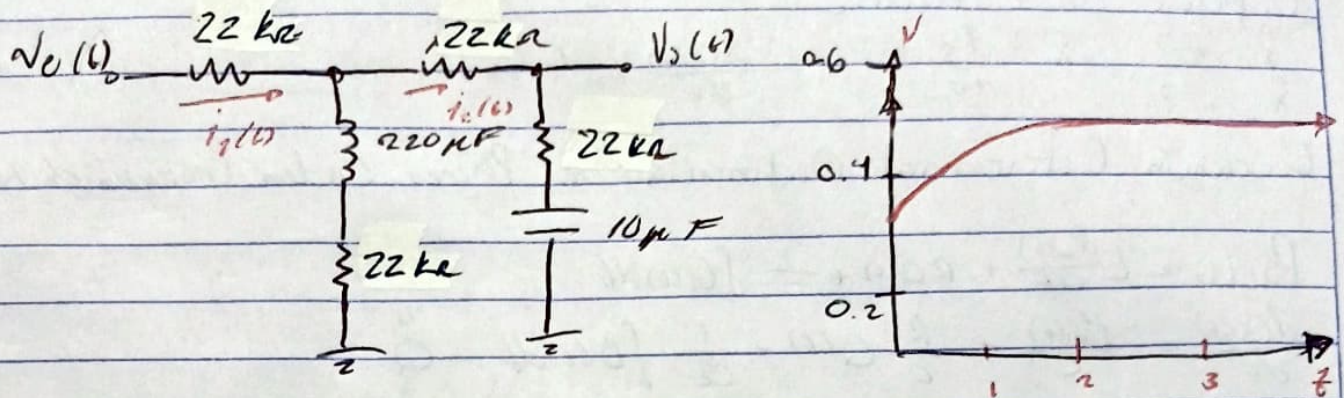 22 kΩ
22kΩ
Ve (t)
Vs (t)
i1(t)
i2(t)
220µF
22kΩ
22kΩ
10µF
V
0.6
0.4
0.2
1
2
3
t